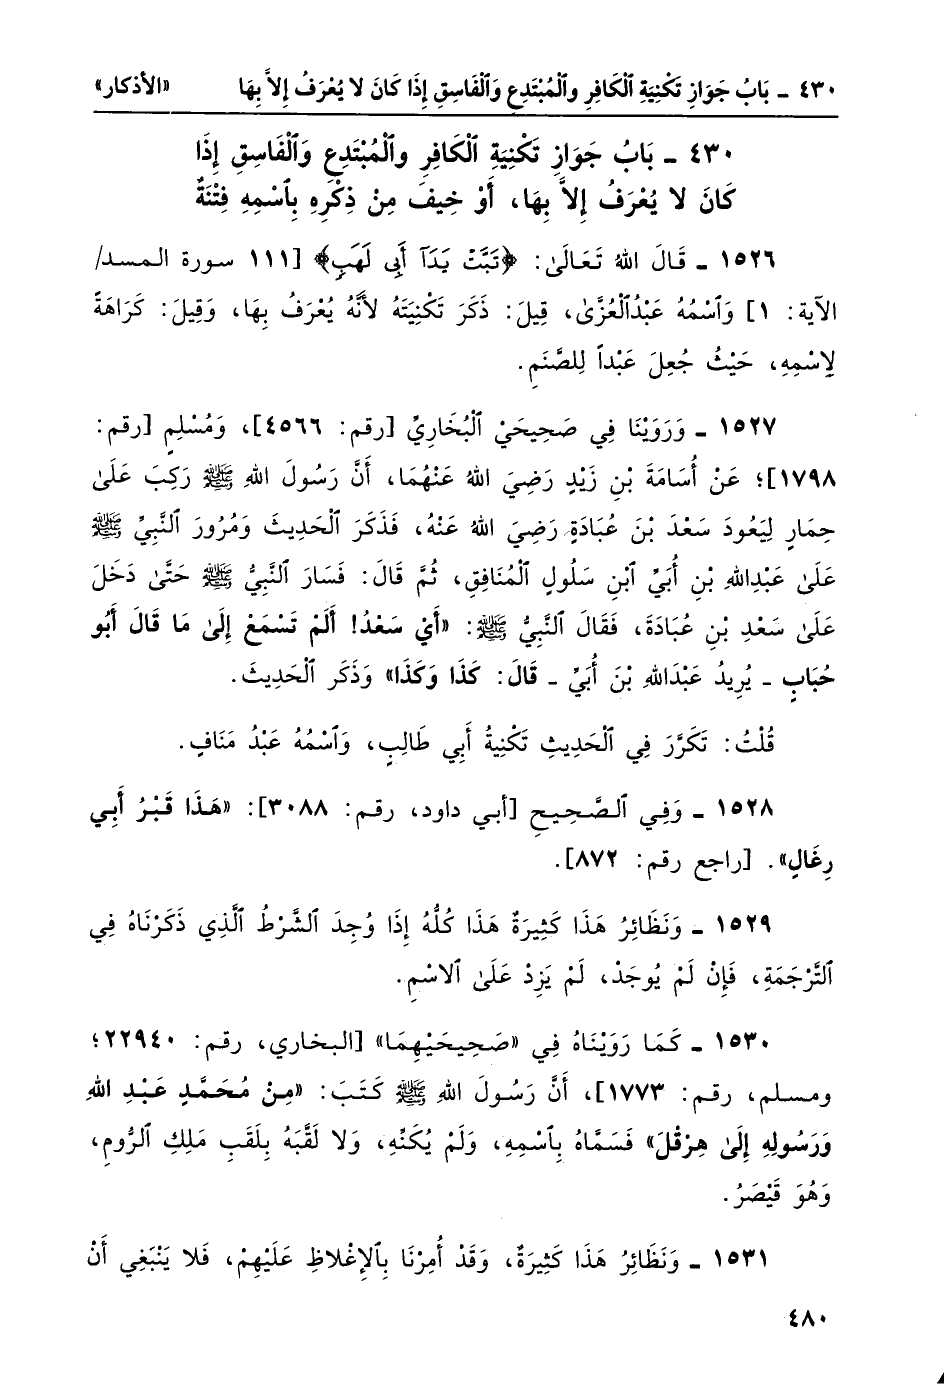 ٤٣٠ ـ بَابُ جَوَازِ تَكْنِيَةِ ٱلْكَافِرِ وٱلْمُبْتَدِعِ وَٱلْفَاسِقِ إِذَا كَانَ لا يُعْرَفُ إِلاَّ بِهَا «الأذكار»
٤٣٠ ـ بَابُ جَوَازِ تَكْنِيَةِ ٱلْكَافِرِ وٱلْمُبْتَدِعِ وَٱلْفَاسِقِ إِذَا
كَانَ لا يُعْرَفُ إِلاَّ بِهَا، أَوْ خِيفَ مِنْ ذِكْرِهِ بِٱسْمِهِ فِتْنَةٌ
١٥٢٦ ـ قَالَ اللهُ تَعَالَىٰ: ﴿تَبَّتْ يَدَآ أَبِي لَهَبٍ﴾ [١١١ سورة المسد/
الآية: ١] وَٱسْمُهُ عَبْدُٱلْعُزَّىٰ، قِيلَ: ذَكَرَ تَكْنِيَتَهُ لأَنَّهُ يُعْرَفُ بِهَا، وَقِيلَ: كَرَاهَةً
لِاسْمِهِ، حَيْثُ جُعِلَ عَبْداً لِلصَّنَمِ.
١٥٢٧ ـ وَرَوَيْنَا فِي صَحِيحَيْ ٱلْبُخَارِيِّ [رقم: ٤٥٦٦]، وَمُسْلِمٍ [رقم:
١٧٩٨]؛ عَنْ أُسَامَةَ بْنِ زَيْدٍ رَضِيَ اللهُ عَنْهُمَا، أَنَّ رَسُولَ اللهِ ﷺ رَكِبَ عَلَىٰ
حِمَارٍ لِيَعُودَ سَعْدَ بْنَ عُبَادَةَ رَضِيَ اللهُ عَنْهُ، فَذَكَرَ ٱلْحَدِيثَ وَمُرُورَ ٱلنَّبِيِّ ﷺ
عَلَىٰ عَبْدِاللهِ بْنِ أُبَيِّ ٱبْنِ سَلُولٍ ٱلْمُنَافِقِ، ثُمَّ قَالَ: فَسَارَ ٱلنَّبِيُّ ﷺ حَتَّىٰ دَخَلَ
عَلَىٰ سَعْدِ بْنِ عُبَادَةَ، فَقَالَ ٱلنَّبِيُّ ﷺ: «أَيْ سَعْدُ! أَلَمْ تَسْمَعْ إِلَىٰ مَا قَالَ أَبُو
حُبَابٍ ـ يُرِيدُ عَبْدَاللهِ بْنَ أُبَيِّ ـ قَالَ: كَذَا وَكَذَا» وَذَكَر ٱلْحَدِيثَ.
قُلْتُ: تَكَرَّرَ فِي ٱلْحَدِيثِ تَكْنِيَةُ أَبِي طَالِبٍ، وَٱسْمُهُ عَبْدُ مَنَافٍ.
١٥٢٨ ـ وَفِي ٱلصَّحِيحِ [أبي داود، رقم: ٣٠٨٨]: «هَذَا قَبْرُ أَبِي
رِغَالٍ». [راجع رقم: ٨٧٢].
١٥٢٩ ـ وَنَظَائِرُ هَذَا كَثِيرَةٌ هَذَا كُلُّهُ إِذَا وُجِدَ ٱلشَّرْطُ ٱلَّذِي ذَكَرْنَاهُ فِي
ٱلتَّرْجَمَةِ، فَإِنْ لَمْ يُوجَدْ، لَمْ يَزِدْ عَلَىٰ ٱلاسْمِ.
١٥٣٠ ـ كَمَا رَوَيْنَاهُ فِي «صَحِيحَيْهِمَا» [البخاري، رقم: ٢٢٩٤٠؛
ومسلم، رقم: ١٧٧٣]، أَنَّ رَسُولَ اللهِ ﷺ كَتَبَ: «مِنْ مُحَمَّدٍ عَبْدِ اللهِ
وَرَسُولِهِ إِلَىٰ هِرَقْلَ» فَسَمَّاهُ بِٱسْمِهِ، وَلَمْ يُكَنِّهِ، وَلا لَقَّبَهُ بِلَقَبِ مَلِكِ ٱلرُّومِ،
وَهُوَ قَيْصَرُ.
١٥٣١ ـ وَنَظَائِرُ هَذَا كَثِيرَةٌ، وَقَدْ أُمِرْنَا بِٱلإِغْلاظِ عَلَيْهِمْ، فَلا يَنْبَغِي أَنْ
٤٨٠